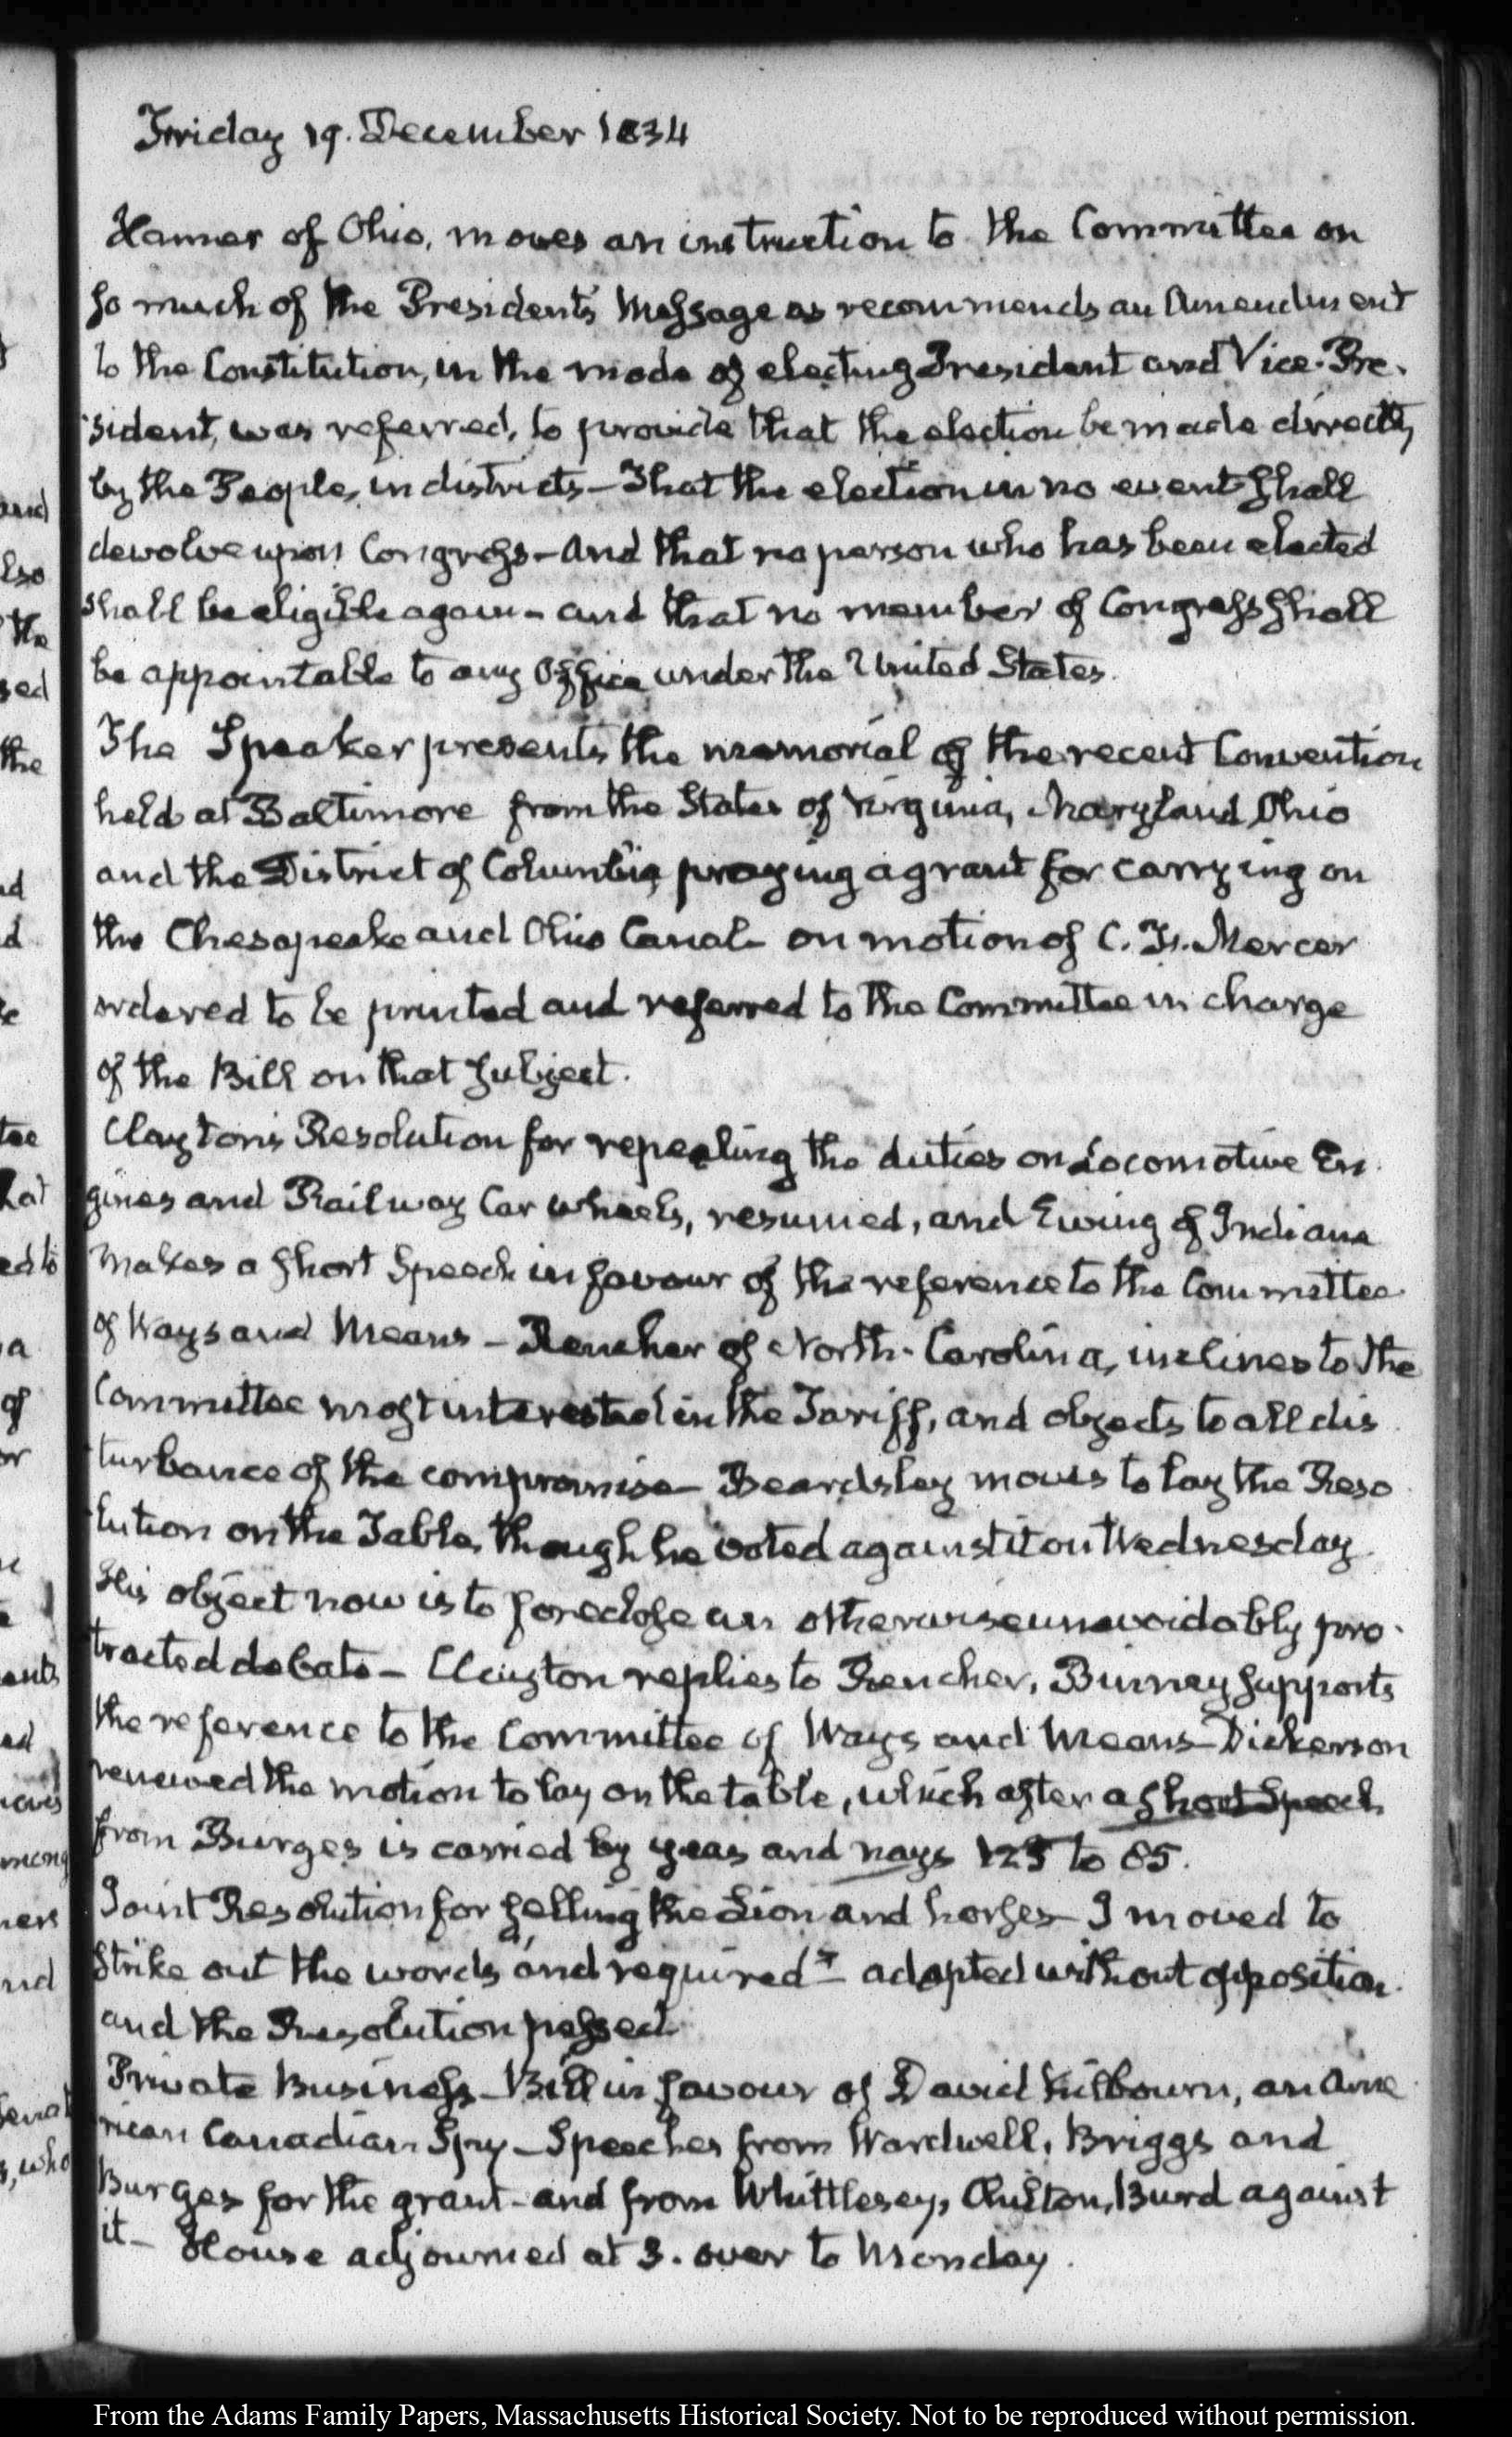 Friday 19. December 1834
Hamer of Ohio, moves an instruction to the Committee on
so much of the President's Message as recommends an Amendment
to the Constitution, in the mode of electing President and Vice-Pre-
sident, was referred, to provide that the election be made directly
by the People, in districts—That the election in no event shall
devolve upon Congress—and that no person who has been elected
shall be eligible again—and that no member of Congress shall
be appointable to any Office under the United States.
The Speaker presents the memorial of the recent Convention
held at Baltimore from the States of Virginia, Maryland, Ohio
and the District of Columbia, praying a grant for carrying on
the Chesapeake and Ohio Canal—on motion of C. F. Mercer
ordered to be printed and referred to the Committee in charge
of the Bill on that subject.
Clayton's Resolution for repealing the duties on Locomotive En-
gines and Railway Car wheels, resumed, and Ewing of Indiana
makes a short Speech in favour of the reference to the Committee
of Ways and Means—Rencher of North-Carolina, inclines to the
Committee most interested in the Tariff, and objects to all dis-
turbance of the compromise—Beardsley moves to lay the Reso-
lution on the Table, though he voted against it on Wednesday
His object now is to foreclose an otherwise unavoidably pro-
tracted debate—Clayton replies to Rencher, Binney supports
the reference to the Committee of Ways and Means—Dickerson
renewed the motion to lay on the table, which after a short Speech
from Burges is carried by yeas and nays 125 to 85.
Joint Resolution for selling the Lion and horses—I moved to
strike out the words "and required"—adopted without opposition
and the Resolution passed
Private Business—Bill in favour of David Kilbourn, an Ame
rican Canadian Spy—Speeches from Wardwell, Briggs and
Burges for the grant—and from Whittlesey, Chilton, Burd against
it—House adjourned at 3. over to Monday.
and
the
sed
the
of
From the Adams Family Papers, Massachusetts Historical Society. Not to be reproduced without permission.